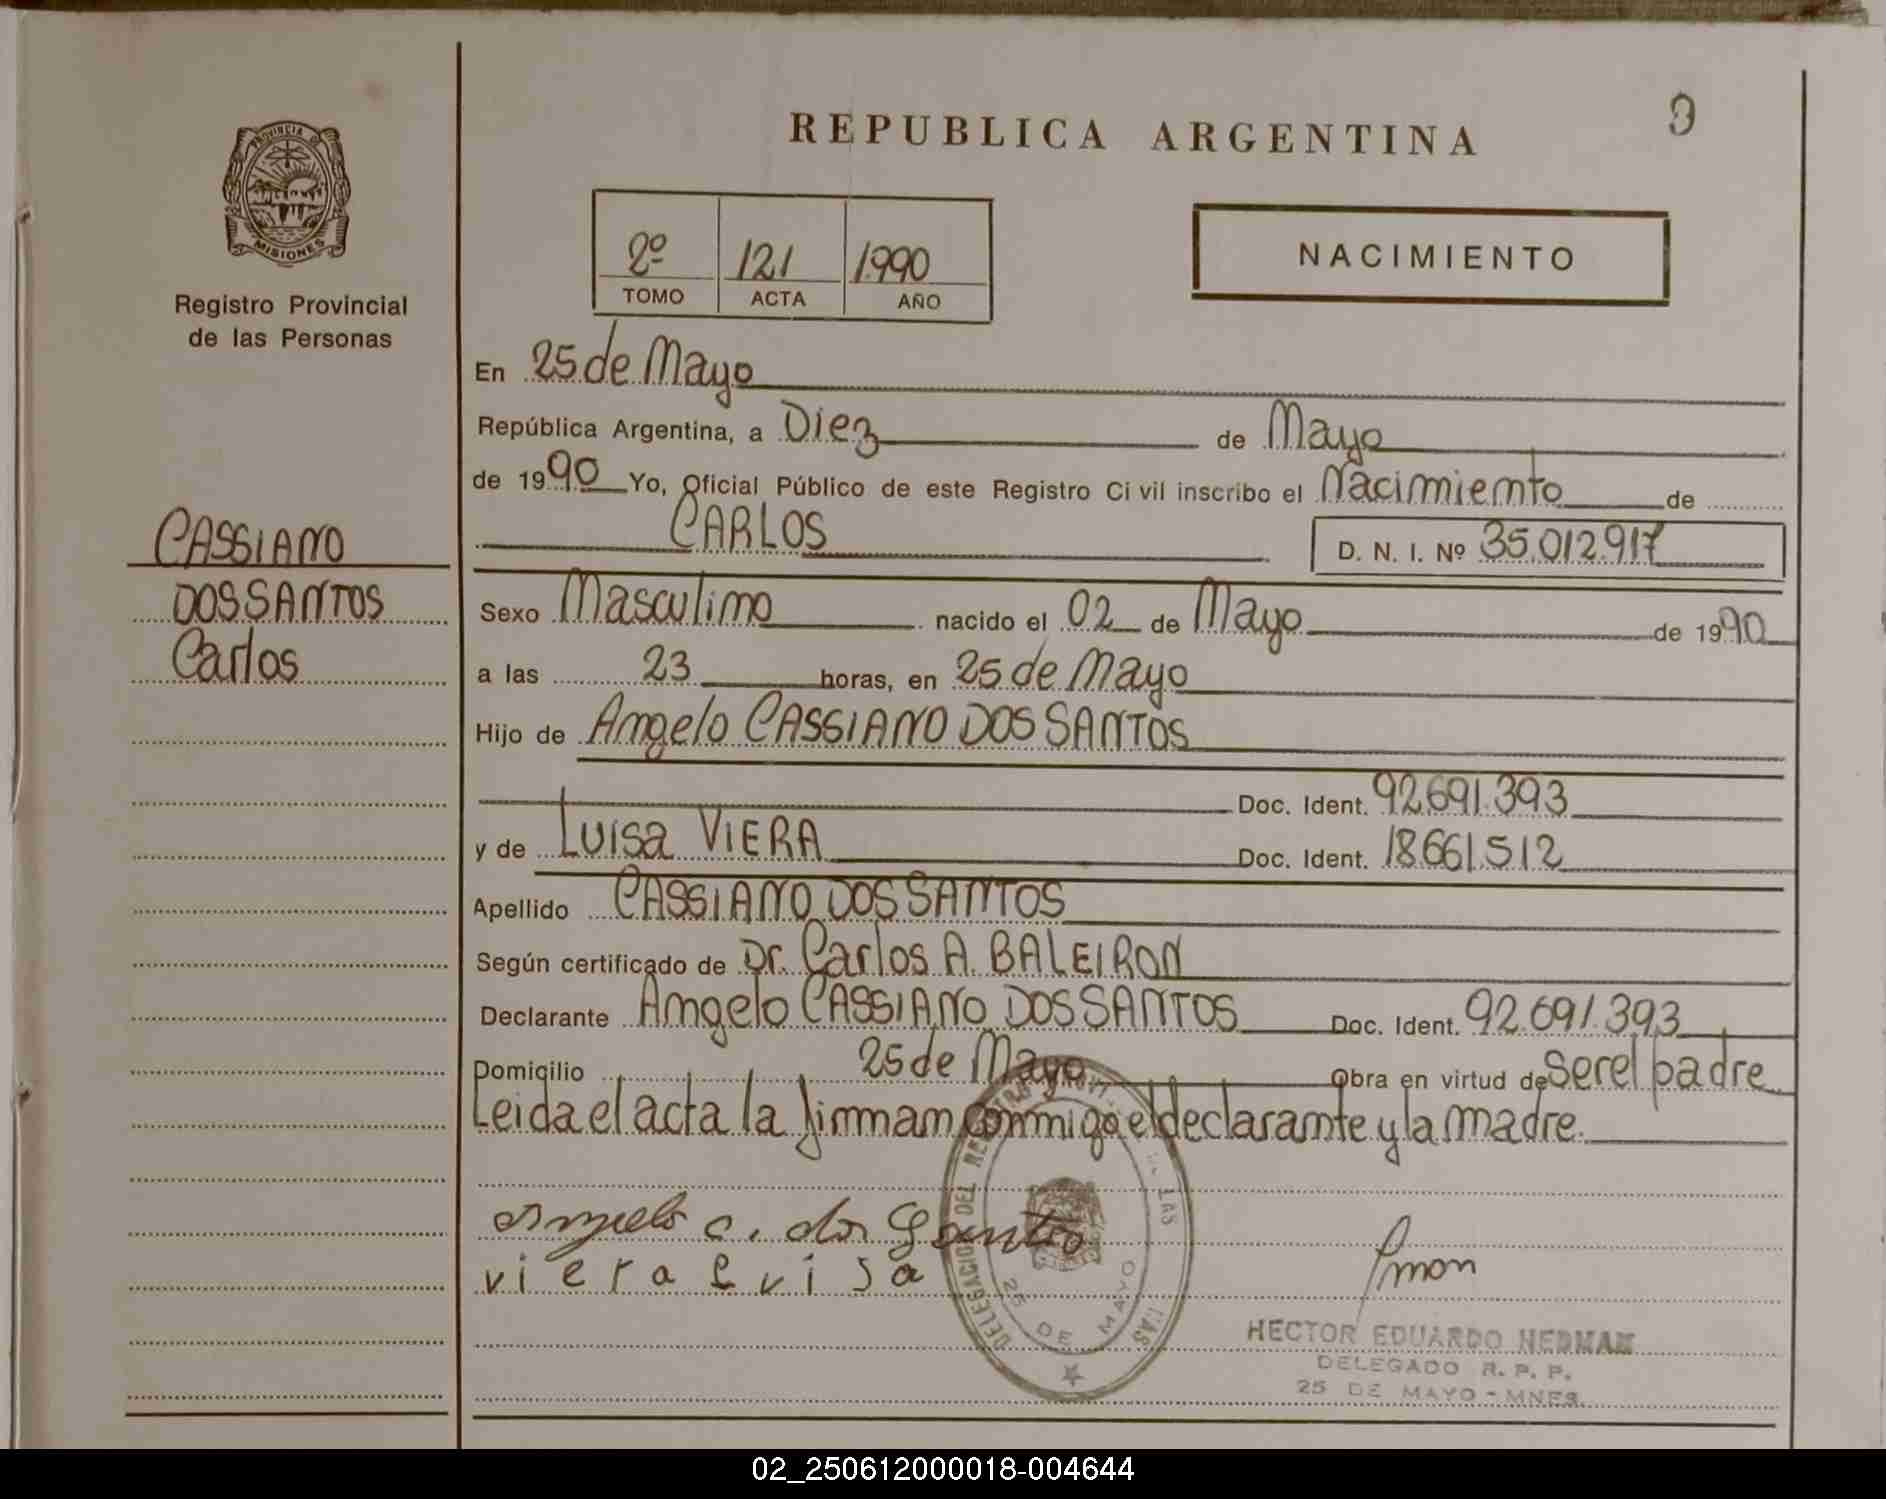 REPUBLICA ARGENTINA
PROVINCIA DE
MISIONES
Registro Provincial
de las Personas
2º 121 1990
TOMO ACTA AÑO
NACIMIENTO
En 25 de Mayo
República Argentina, a Diez de Mayo
de 1990 Yo, Oficial Público de este Registro Civil inscribo el Nacimiento de
CARLOS D. N. I. Nº 35.012.917
CASSIANO
DOS SANTOS
Carlos
Sexo Masculino nacido el 02 de Mayo de 1990
a las 23 horas, en 25 de Mayo
Hijo de Angelo CASSIANO DOS SANTOS
Doc. Ident. 92.691.393
y de Luisa VIERA Doc. Ident. 18.661.512
Apellido CASSIANO DOS SANTOS
Según certificado de Dr. Carlos A. BALEIRON
Declarante Angelo CASSIANO DOS SANTOS Doc. Ident. 92.691.393
Domicilio 25 de Mayo Obra en virtud de Ser el padre
Leida el acta la firman conmigo el declarante y la madre.
Angelo c. dos Santos
viera Luisa
25 DE MAYO
HECTOR EDUARDO NEDMAN
DELEGADO R. P. P.
25 DE MAYO - MNES.
02_250612000018-004644